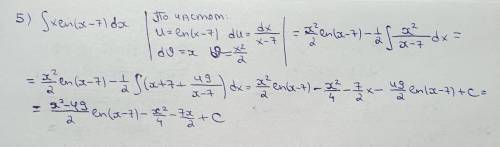 5) ∫xln(x-7)dx | По частям: u=ln(x-7) du=dx/(x-7) dϑ=x ϑ=x²/2 | = x²/2 ln(x-7) - 1/2 ∫ x²/(x-7) dx =
= x²/2 ln(x-7) - 1/2 ∫(x+7+ 49/(x-7))dx = x²/2 ln(x-7) - x²/4 - 7/2 x - 49/2 ln(x-7) + C =
= (x²-49)/2 ln(x-7) - x²/4 - 7x/2 + C